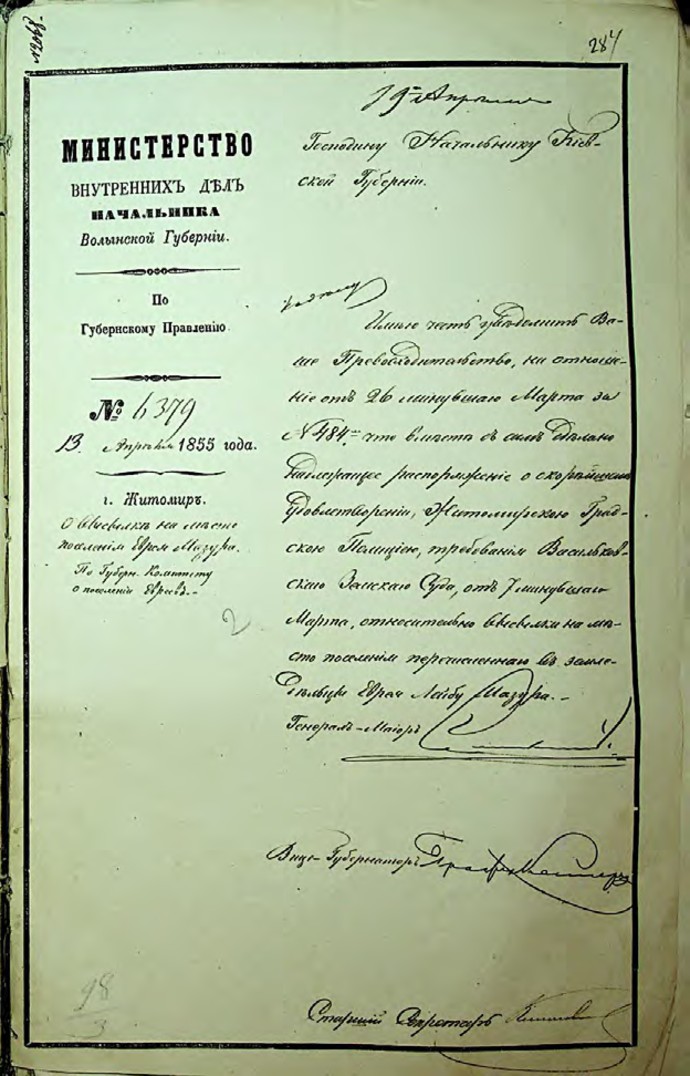 287
19 Апреля
МИНИСТЕРСТВО
ВНУТРЕННИХЪ ДѢЛЪ
НАЧАЛЬНИКА
Волынской Губерніи.
По
Губернскому Правленію
№ 6379
13 Апрѣля 1855 года.
г. Житомиръ.
О высылкѣ на мѣсто
поселенія Еврея Мазура.
По Губерн. Комитету
о поселеніи Евреевъ.-
2
98
3
Господину Начальнику Кіев-
ской Губерніи.
Имѣю честь увѣдомить Ва-
ше Превосходительство, на отноше-
ніе отъ 26 минувшаго Марта за
№ 484, что вмѣстѣ съ симъ сдѣлано
надлежащее распоряженіе о скорѣйшемъ
удовлетвореніи, Житомирскою Град-
скою Полиціею, требованія Васильков-
скаго Земскаго Суда, отъ 7 минувшаго
Марта, относительно высылки на мѣ-
сто поселенія перечисленнаго въ земле-
дѣльцы Еврея Лейбу Мазура.-
Генералъ-Маіоръ
Вице-Губернаторъ Графъ
Старшій Секретарь